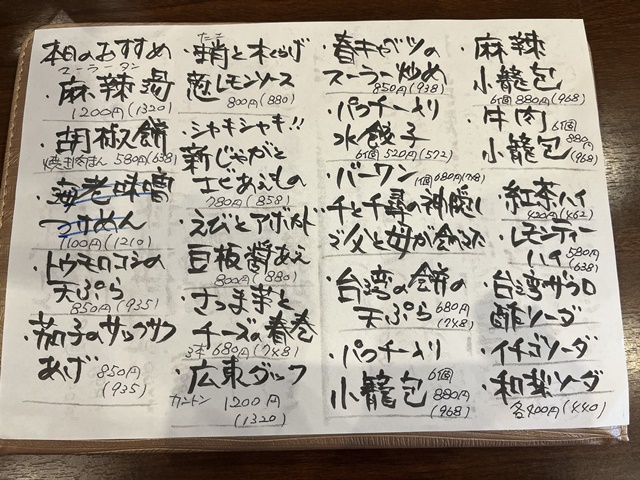 本日のおすすめ
マーラータン
・麻辣湯
1200円(1320)
・胡椒餅
焼き肉まん 580円(638)
・海老味噌
つけめん
1100円(1210)
・トウモロコシの
天ぷら
850円(935)
・茄子のサックサク
あげ 850円
(935)
・蛸と木くらげ
葱レモンソース
800円(880)
・シャキシャキ!!
新じゃがと
エビあえもの
780円(858)
・えびとアボカド
豆板醤あえ
800円(880)
・さつま芋と
チーズの春巻
3本 680円(748)
・広東ダック
カントン 1200円
(1320)
・春キャベツの
スーラー炒め
850円(938)
・パクチー入り
水餃子
6個 520円(572)
・バーワン 1個 680円(748)
千と千尋の神隠し
で父と母が食べてた
・台湾の餅の
天ぷら 680円
(748)
・パクチー入り
小籠包 6個
880円
(968)
・麻辣
小籠包
6個 880円(968)
・牛肉 6個
小籠包 880円
(968)
・紅茶ハイ
420円(462)
・レモンティー
ハイ 580円
(638)
・台湾ザクロ
酢ソーダ
・イチゴソーダ
・和梨ソーダ
各400円(440)